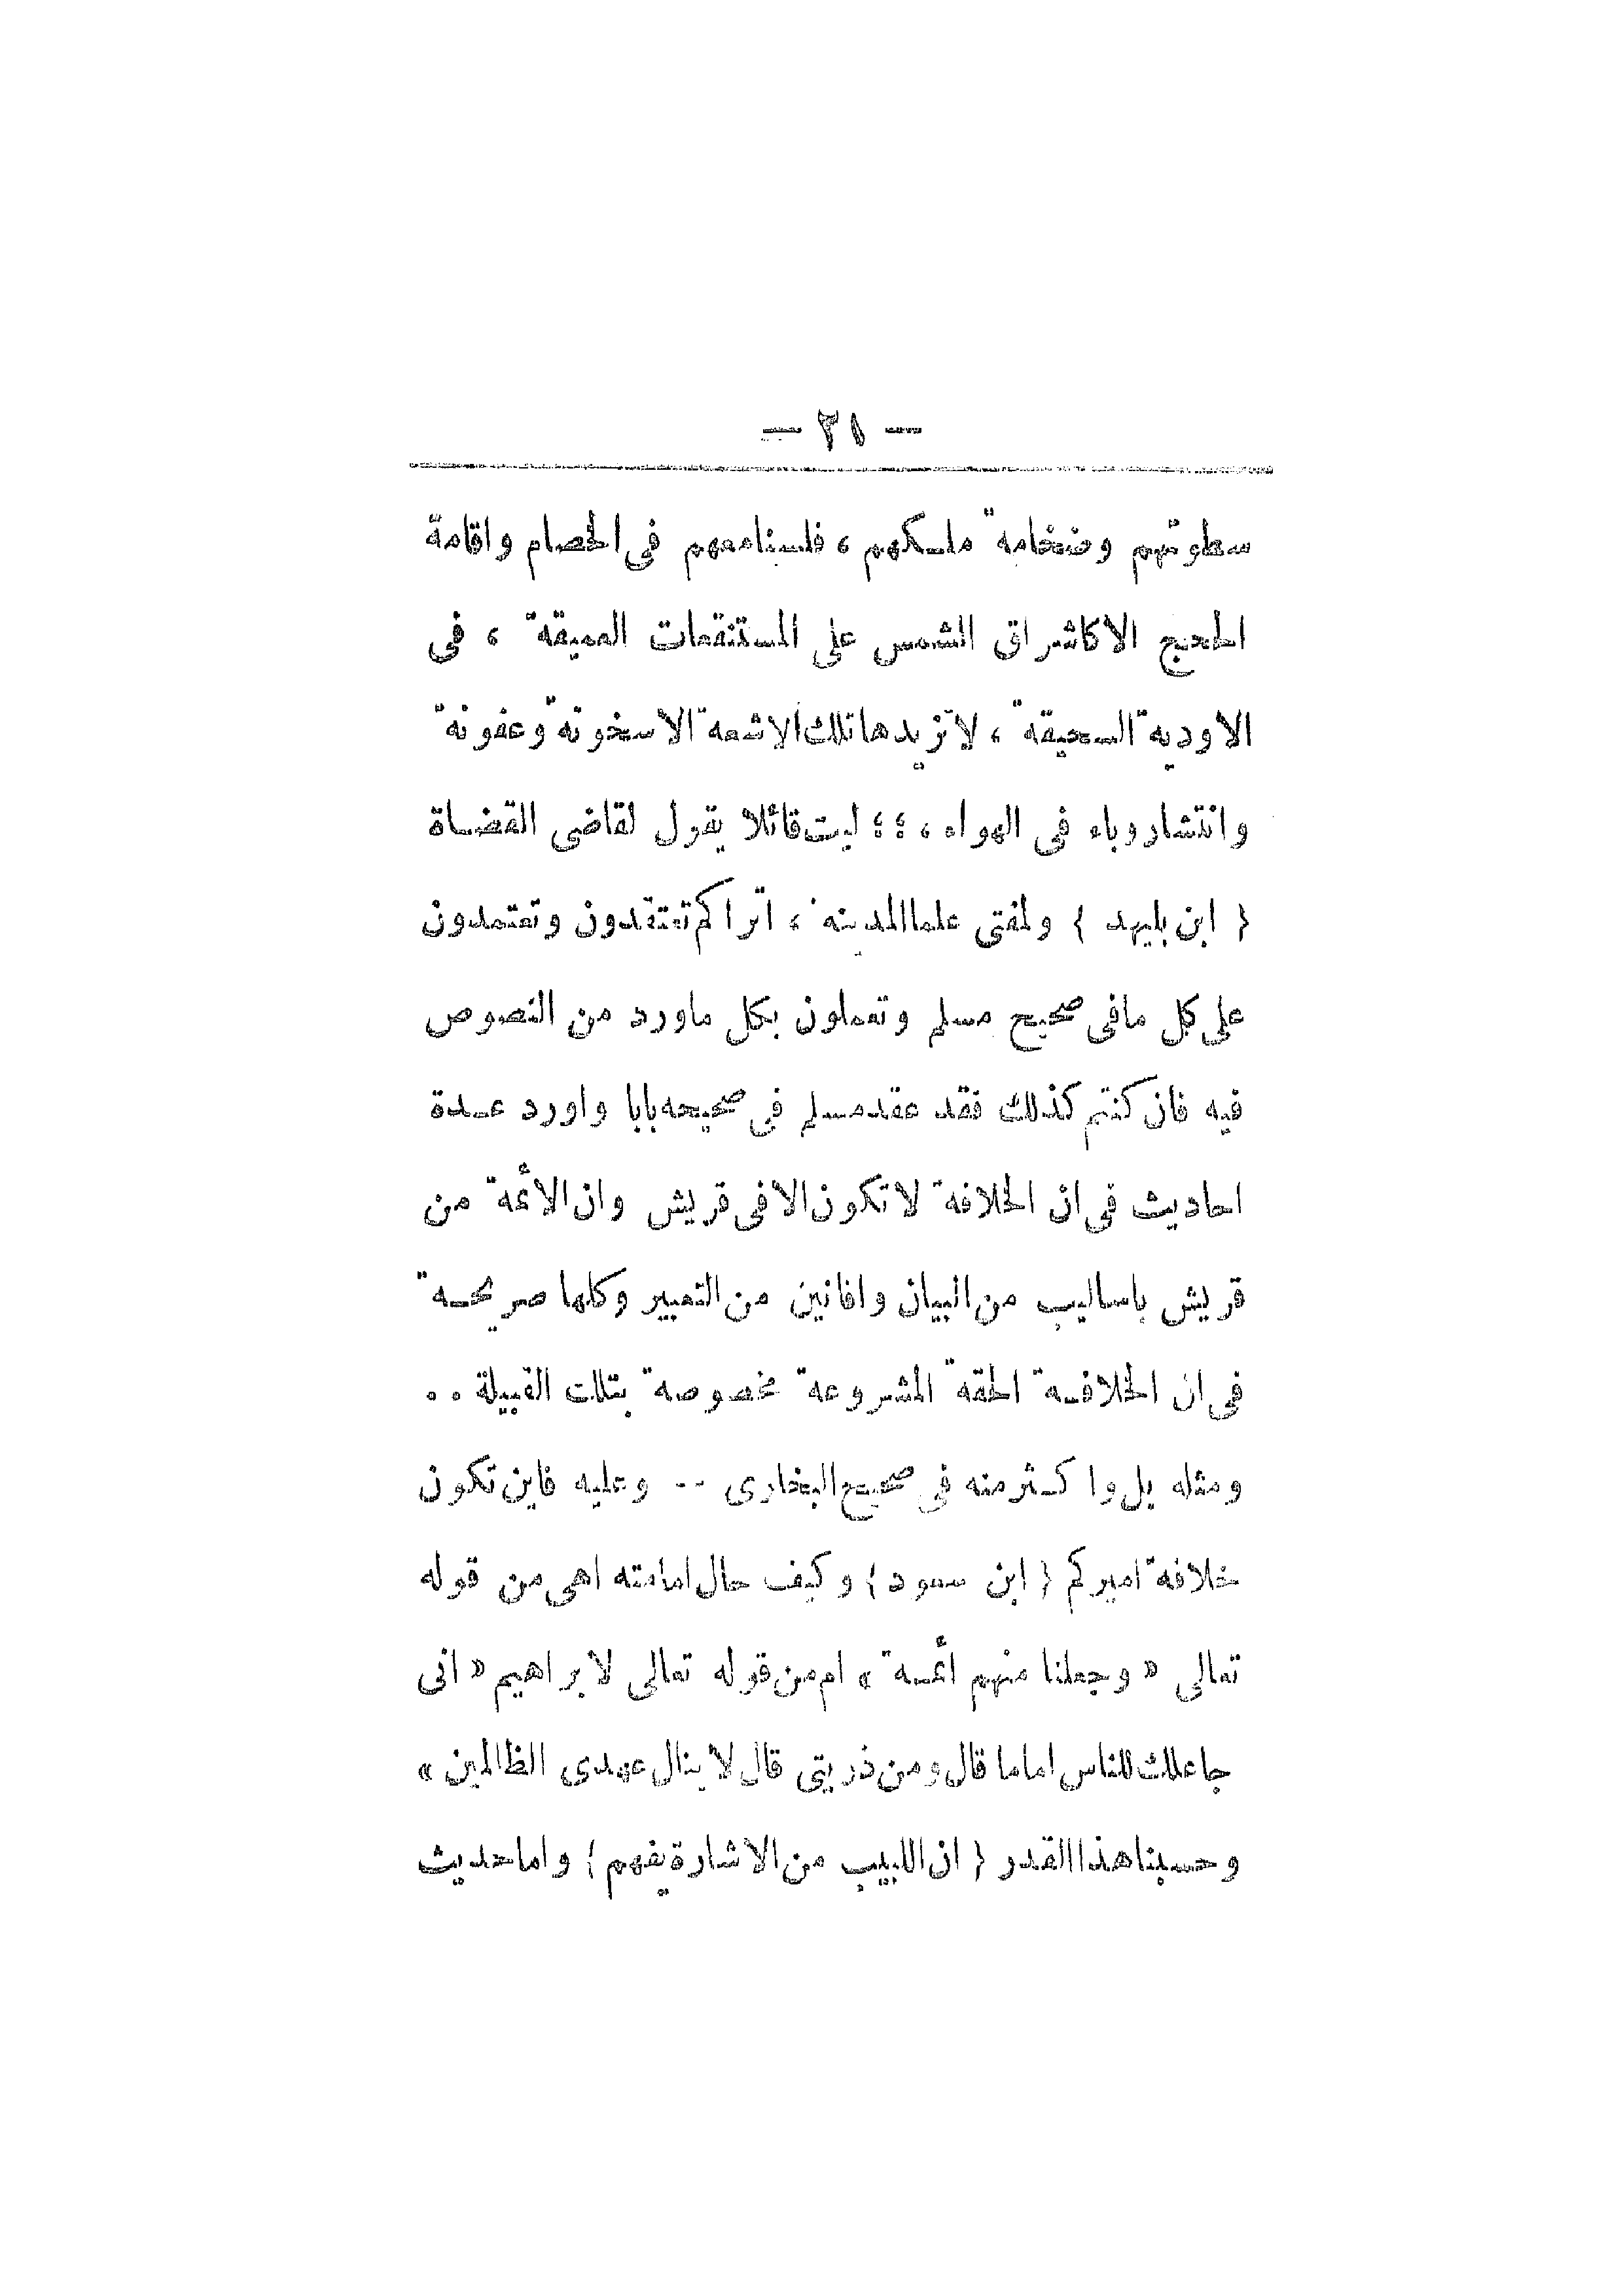 — ٣١ —
سطوتهم وضخامة ملكهم ، فلسنا معهم في الخصام واقامة
الحجج الا كاشراق الشمس على المستنقعات العميقة ، في
الاودية السحيقة ، لا تزيدها تلك الاشعة الا سخونة وعفونة
وانتشار وباء في الهواء ، ؛ ؛ ليت قائلا يقول لقاضى القضاة
{ ابن بليهد } ولمفتى علما المدينة ، اترا كم تعتقدون وتعتمدون
على كل مافى صحيح مسلم وتعملون بكل ماورد من النصوص
فيه فان كنتم كذلك فقد عقد مسلم في صحيحه بابا واورد عدة
احاديث في ان الخلافة لا تكون الا في قريش وان الأئمة من
قريش باساليب من البيان وافانين من التعبير وكلها صريحة
في ان الخلافة الحقة المشروعة مخصوصة بتلك القبيلة ..
ومثله بل وا كثر منه في صحيح البخارى -- وعليه فاين تكون
خلافة امير كم { ابن سعود } وكيف حال امامته اهى من قوله
تعالى « وجعلنا منهم أئمة » ام من قوله تعالى لابراهيم « انى
جاعلك للناس اماما قال ومن ذريتى قال لا ينال عهدى الظالمين »
وحسبنا هذا القدر { ان اللبيب من الاشارة يفهم } واما حديث